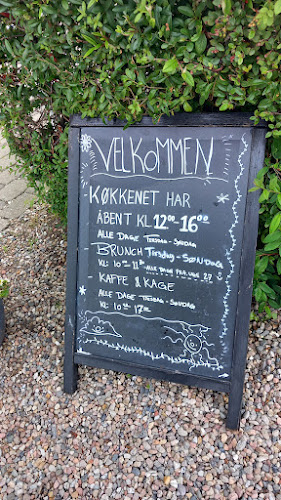 VELKOMMEN
KØKKENET HAR
ÅBENT KL 12.00-16.00
ALLE DAGE TORSDAG - SØNDAG
BRUNCH TIRSDAG - SØNDAG
KL: 10.00 - 11.30 - ALLE DAGE FRA UGE 27
KAFFE & KAGE
ALLE DAGE TIRSDAG - SØNDAG
KL: 10.00 - 17.00